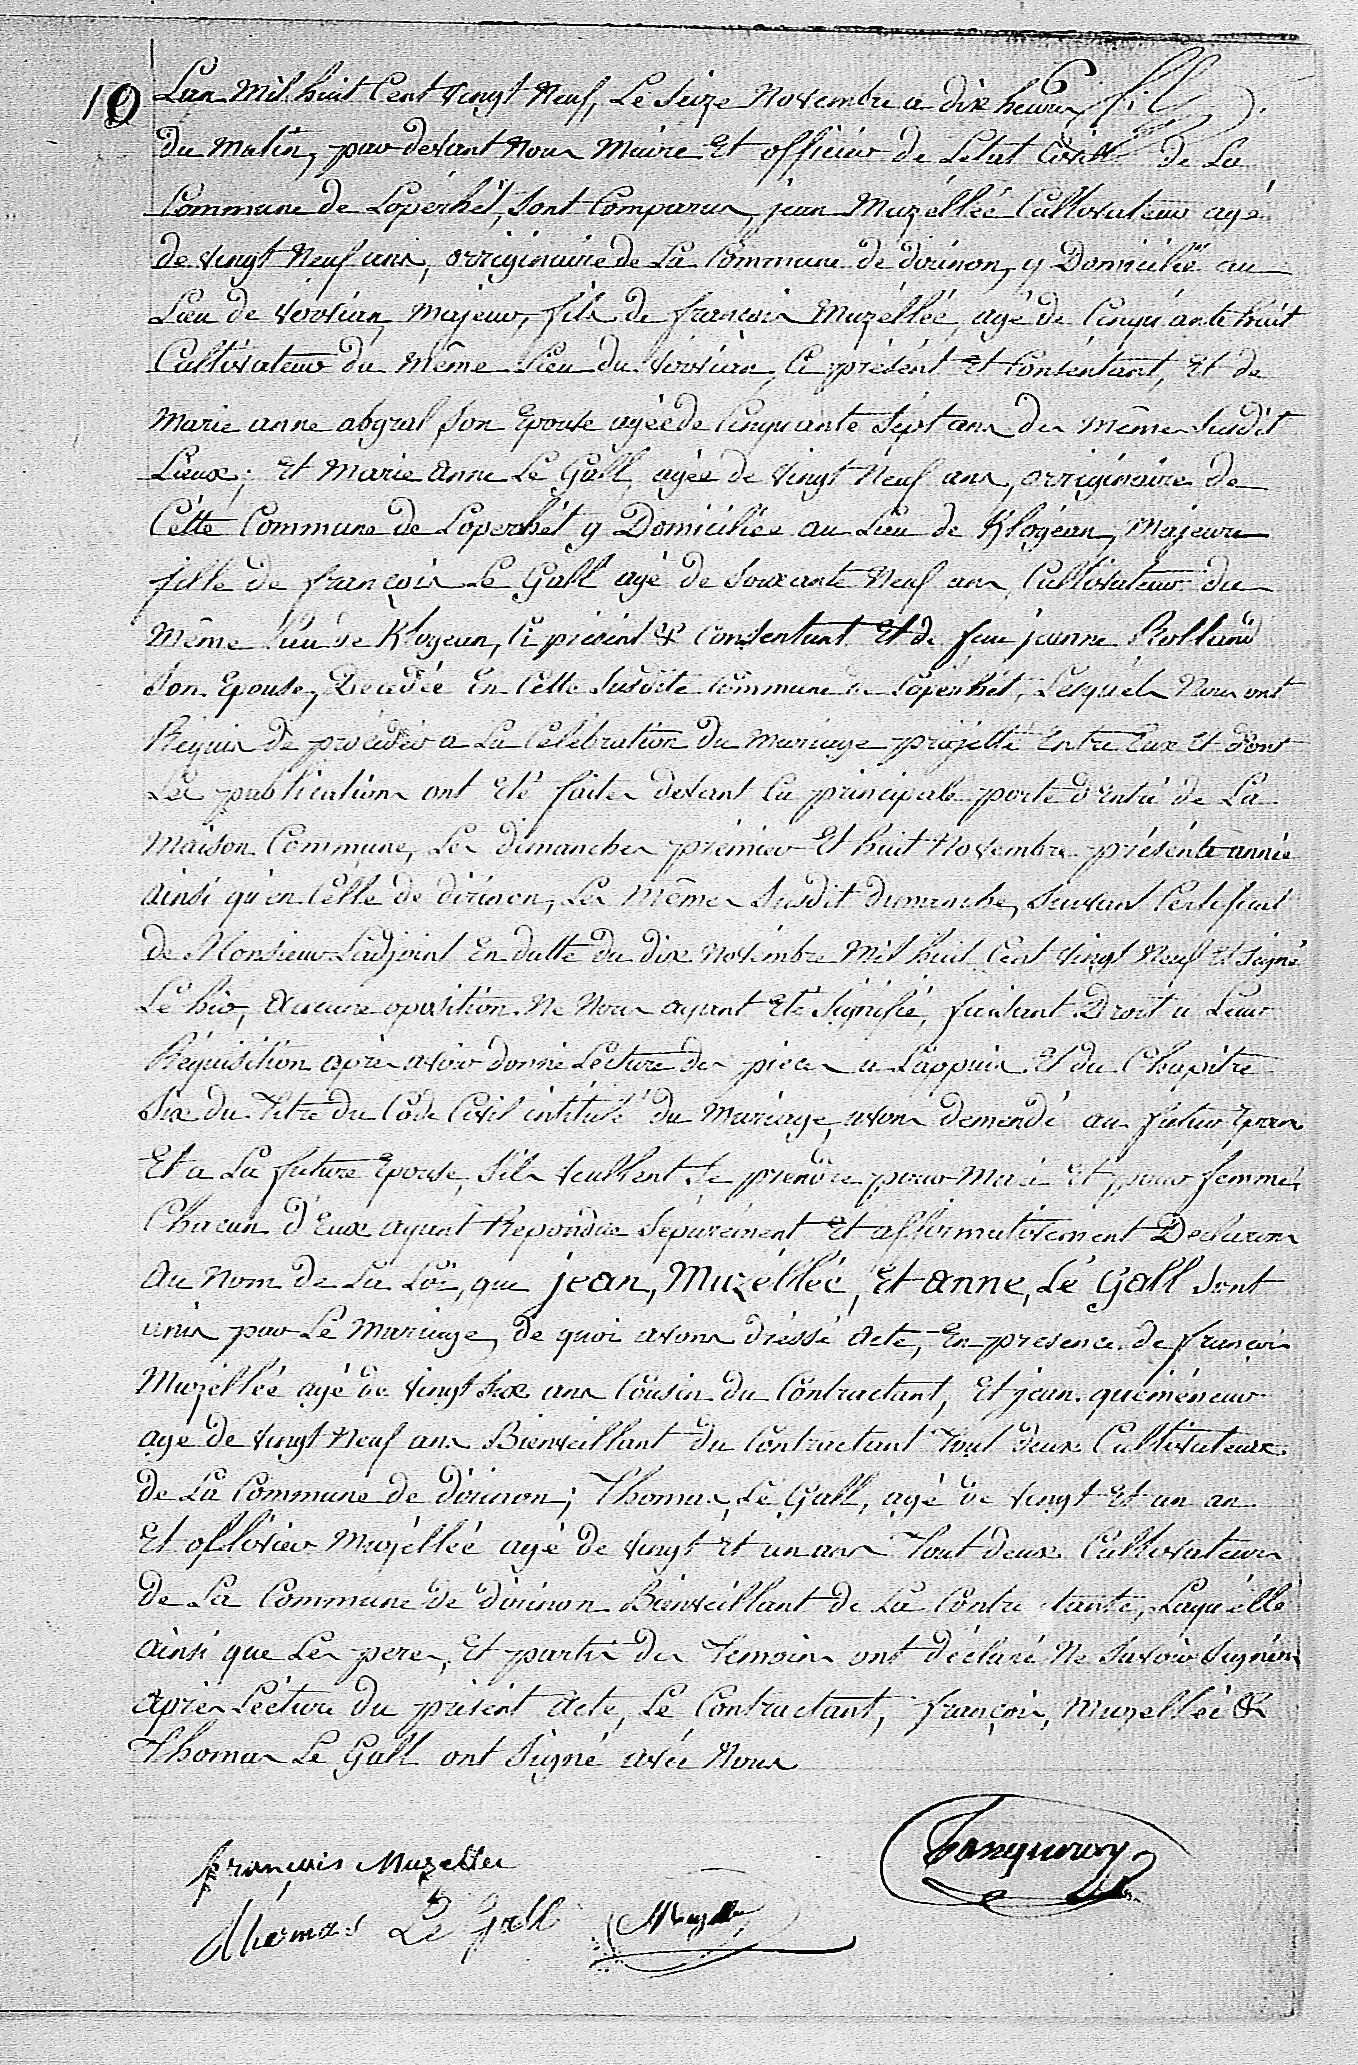 10 L'an Mil huit Cent vingt Neuf, Le Seize Novembre a dix heures
du Matin, par devant Nous Maire Et officier de L'etat Civil De La
Commune de Loperhét, Sont Comparus, jean Muzéllée Cultivateur agé
de vingt Neuf ans, orriginaire de La Commune de dirinon, y Domicilié au
Lieu de Majeur, fils de françois Muzéllée, agé de Cinquante huit
Cultivateur du Même Lieu du Ci présent Et Consentant, Et de
Marie anne abgral Son Epouse agée de Cinquante Sept ans du même Susdit
Lieux; Et Marie Anne Le Gall, agée de vingt Neuf ans, orriginaire de
Cétte Commune de Loperhét y Domiciliée au Lieu de Klogéan, Majeure
fille de françois Le Gall agé de Soixante Neuf ans Cultivateur du
Même Lieu de Klogéan, Ci présent & Consentant Et de feu jeanne Rolland
Son Epouse, Décédée En Cette Susdite Commune de Loperhét, Lesquels Nous ont
Réquis de procéder a La Célébration du Mariage projétté Entre Eux Et dont
Les publications ont été faites devant La principale porte d'Entré de La
Maison Commune, Les dimanches prémier Et huit Novembre présente année
ainsi qu'en Celle de dirinon, Les Mêmes Susdit dimanche, Suivant Certificat
de Monsieur L'adjoint En datte du dix Novémbre Mil huit Cent vingt Neuf Et Signé
Lé hir, Aucune oposition Ne Nous ayant Eté Signifié, faisant Droit a Leur
Réquisition après avoir donné Lecture des pieces a L'appuis Et du Chapitre
Six du Titre du Code Civil intitulé du Mariage, avons demendé au futur Epoux
Et a La future Epouse, S'ils veullent Se prendre pour Mari Et pour femme,
Chacun d'Eux ayant Repondus Séparément Et affirmativement Declarons
Au Nom de La Loi, que jean, Muzéllée, Et anne, Lé Gall Sont
unis par Le Mariage, de quoi avons dréssé Acte, En présence de françois
Muzéllée agé de vingt Six ans Cousin du Contractant, Et jean quéméneur
agé de vingt Neuf ans Bienveillant du Contractant Tout deux Cultivateurs
de La Commune de dirinon; Thomas Le Gall, agé de vingt Et un an
Et ollivier Muzéllée agé de vingt Et un ans Tout deux Cultivateurs
de La Commune de dirinon Bienveillant de La Contractante, Laquélle
ainsi que Les peres, Et partie des Témoins ont déclaré Ne Savoir Signér,
après Lécture du présent Acte, Le Contractant, françois, Muzellée &
Thomas Le Gall ont Signé avec Nous
françois Muzellec
thomas Le Gall Muzellec